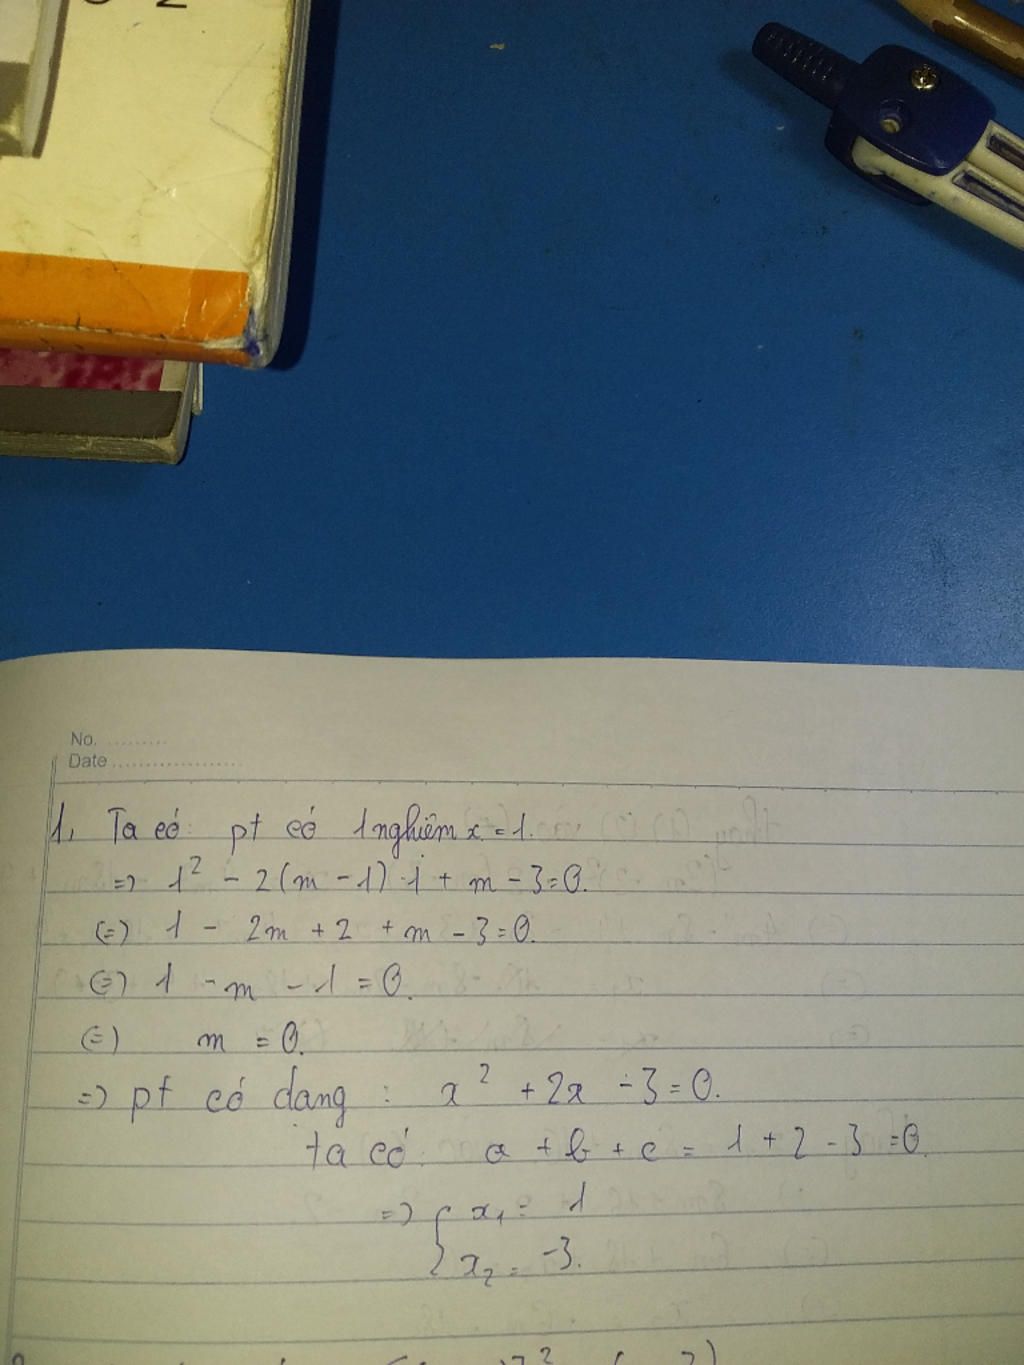 No. .........
Date ...................
1, Ta có: pt có 1 nghiệm x = 1.
=> 1² - 2(m - 1) . 1 + m - 3 = 0.
(=) 1 - 2m + 2 + m - 3 = 0.
(=) 1 - m - 1 = 0.
(=) m = 0.
=> pt có dạng : x² + 2x - 3 = 0.
ta có: a + b + c = 1 + 2 - 3 = 0.
=> { x₁ = 1
x₂ = -3.